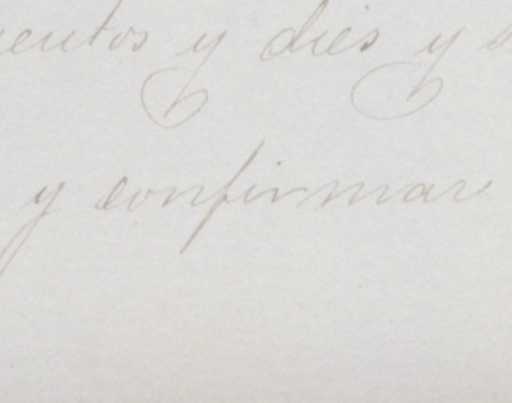 entos y dies y
y confirmar